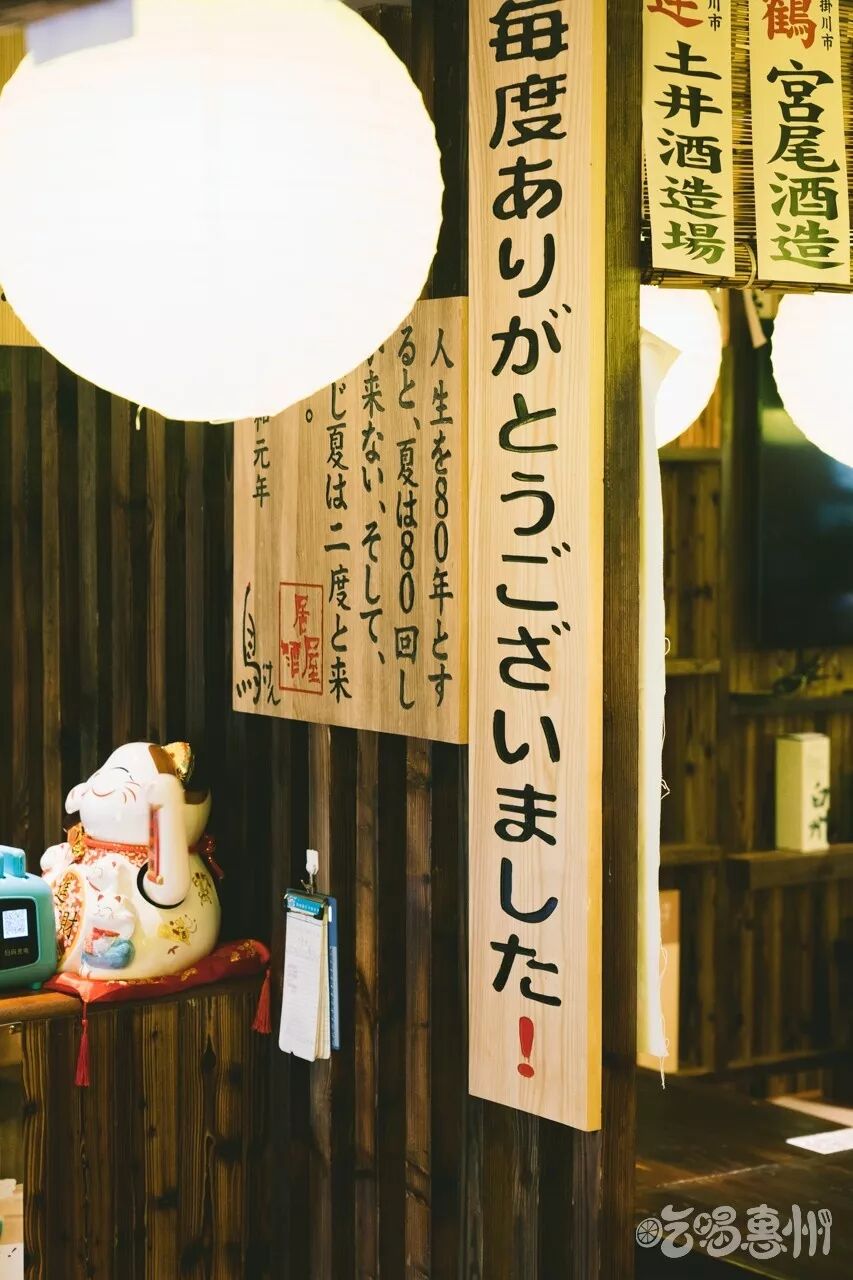 鶴
掛川市
宮尾酒造
掛川市
土井酒造場
毎度ありがとうございました!
人生を80年とす
ると、夏は80回し
来ない、そして、
じ夏は二度と来
。
和元年
居酒屋
鳥けん
財
吃喝惠州